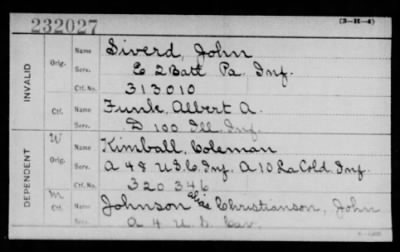 232027 (3-H-4)
INVALID
Orig. Name Siverd, John
Serv. E 2 Batt Pa. Inf.
Ctf. No. 313010
Ctf. Name Funk, Albert A.
Serv. D 100 Ill. Inf.
DEPENDENT
W Orig. Name Kimball, Coleman
Serv. A 48 U.S.C. Inf. A 10 La Cold. Inf.
Ctf. No. 320346
M Ctf. Name Johnson alias Christianson, John
Serv. A 4 U. S. Cav.